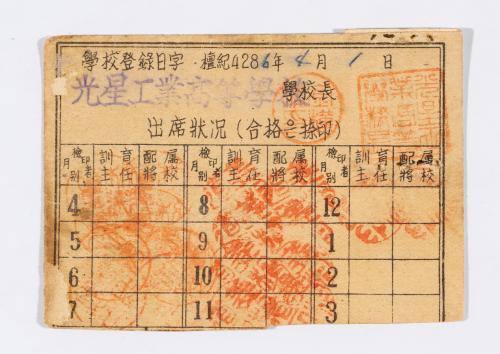 學校登錄日字 檀紀4286年 4月 1日
光星工業高等學校
學校長
出席狀況(合格은捺印)
月別 檢印者 訓育主任 配属將校 月別 檢印者 訓育主任 配属將校 月別 檢印者 訓育主任 配属將校
4 8 12
5 9 1
6 10 2
7 11 3